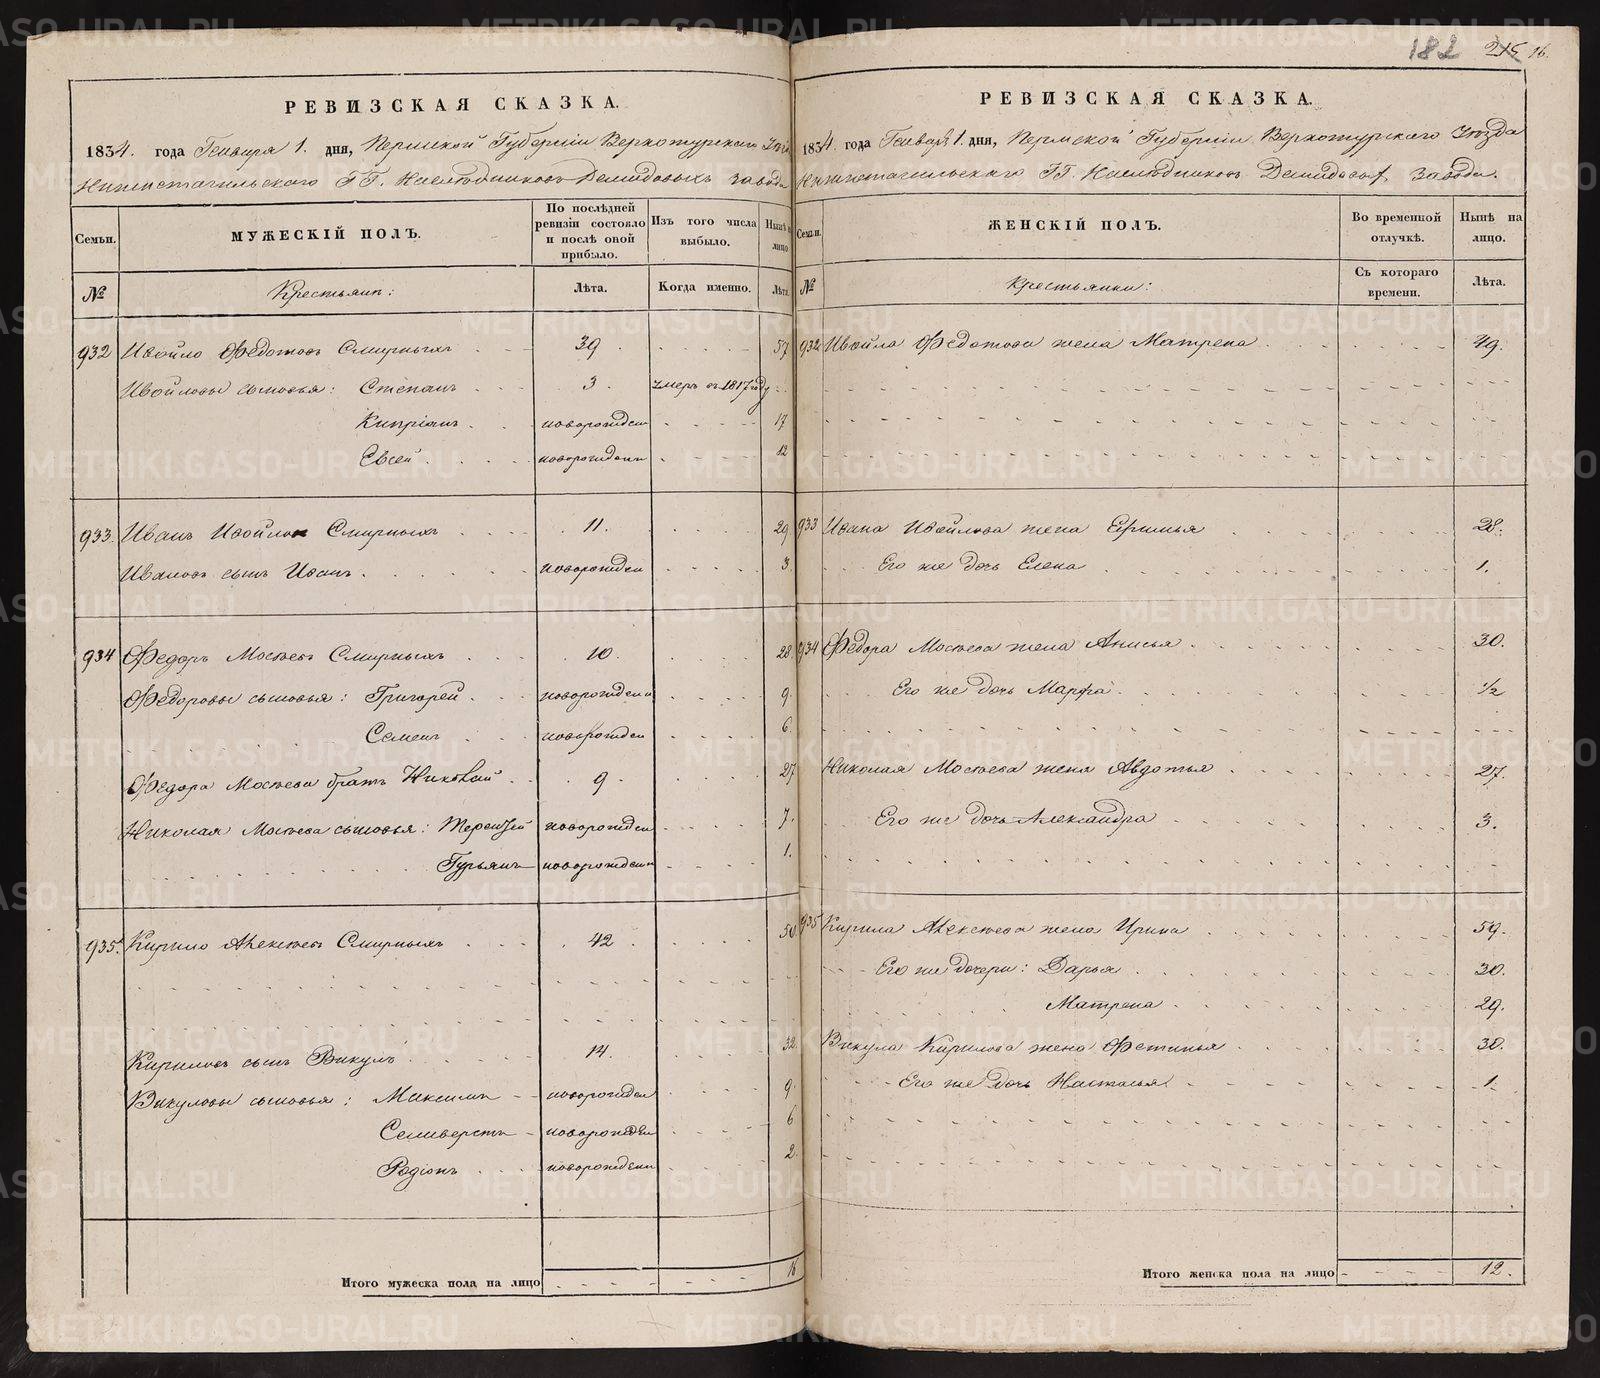 182 215 16.
РЕВИЗСКАЯ СКАЗКА.
1834. года Генваря 1. дня, Пермской Губерніи Верхотурскаго Уѣзда
Нижнетагильскаго ГГ. Наслѣдниковъ Демидовыхъ завода
Семьи.
МУЖЕСКІЙ ПОЛЪ.
По послѣдней ревизіи состояло и послѣ оной прибыло.
Изъ того числа выбыло.
Нынѣ на лицо
№
Крестьянъ:
Лѣта.
Когда именно.
Лѣта.
932 Ивойло Федотовъ Смирныхъ 39 57
Ивойловы сыновья: Степанъ 3 умеръ въ 1817 году
Кипріянъ новорожден 17
Евсей новорожденъ 12
933. Иванъ Ивойловъ Смирныхъ 11. 29
Ивановъ сынъ Иванъ новорожден 3.
934 Федоръ Мосѣевъ Смирныхъ 10. 28.
Федоровы сыновья: Григорей новорожденъ 9.
Семенъ новорожден 6.
Федора Мосѣева братъ Николай 9 27
Николая Мосѣева сыновья: Терентей новорожден 7.
Гурьянъ новорожденъ 1.
935. Кирило Алексѣевъ Смирныхъ 42
Кириловъ сынъ Викулъ 14. 32.
Викуловы сыновья: Максимъ новорожден 9
Селиверстъ новорожден 6
Родіонъ новорожденъ 2
Итого мужеска пола на лицо 16
РЕВИЗСКАЯ СКАЗКА.
1834. года Генваря 1. дня, Пермской Губерніи Верхотурскаго Уѣзда
Нижнетагильскаго ГГ. Наслѣдниковъ Демидовыхъ Завода.
Семьи.
ЖЕНСКІЙ ПОЛЪ.
Во временной отлучкѣ.
Нынѣ на лицо.
№
Крестьянки:
Съ котораго времени.
Лѣта.
932 Ивойла Федотова жена Матрена 49.
933 Ивана Ивойлова жена Ефимья 28.
Его же дочь Елена 1.
934 Федора Мосѣева жена Анисья 30.
Его же дочь Марфа 1/2
Николая Мосѣева жена Авдотья 27.
Его же дочь Александра 3.
935 Кирила Алексѣева жена Ирина 59.
Его же дочери: Дарья 30.
Матрена 29.
Викула Кирилова жена Фетинья 30.
Его же дочь Настасья 1.
Итого женска пола на лицо 12.
METRIKI.GASO-URAL.RU